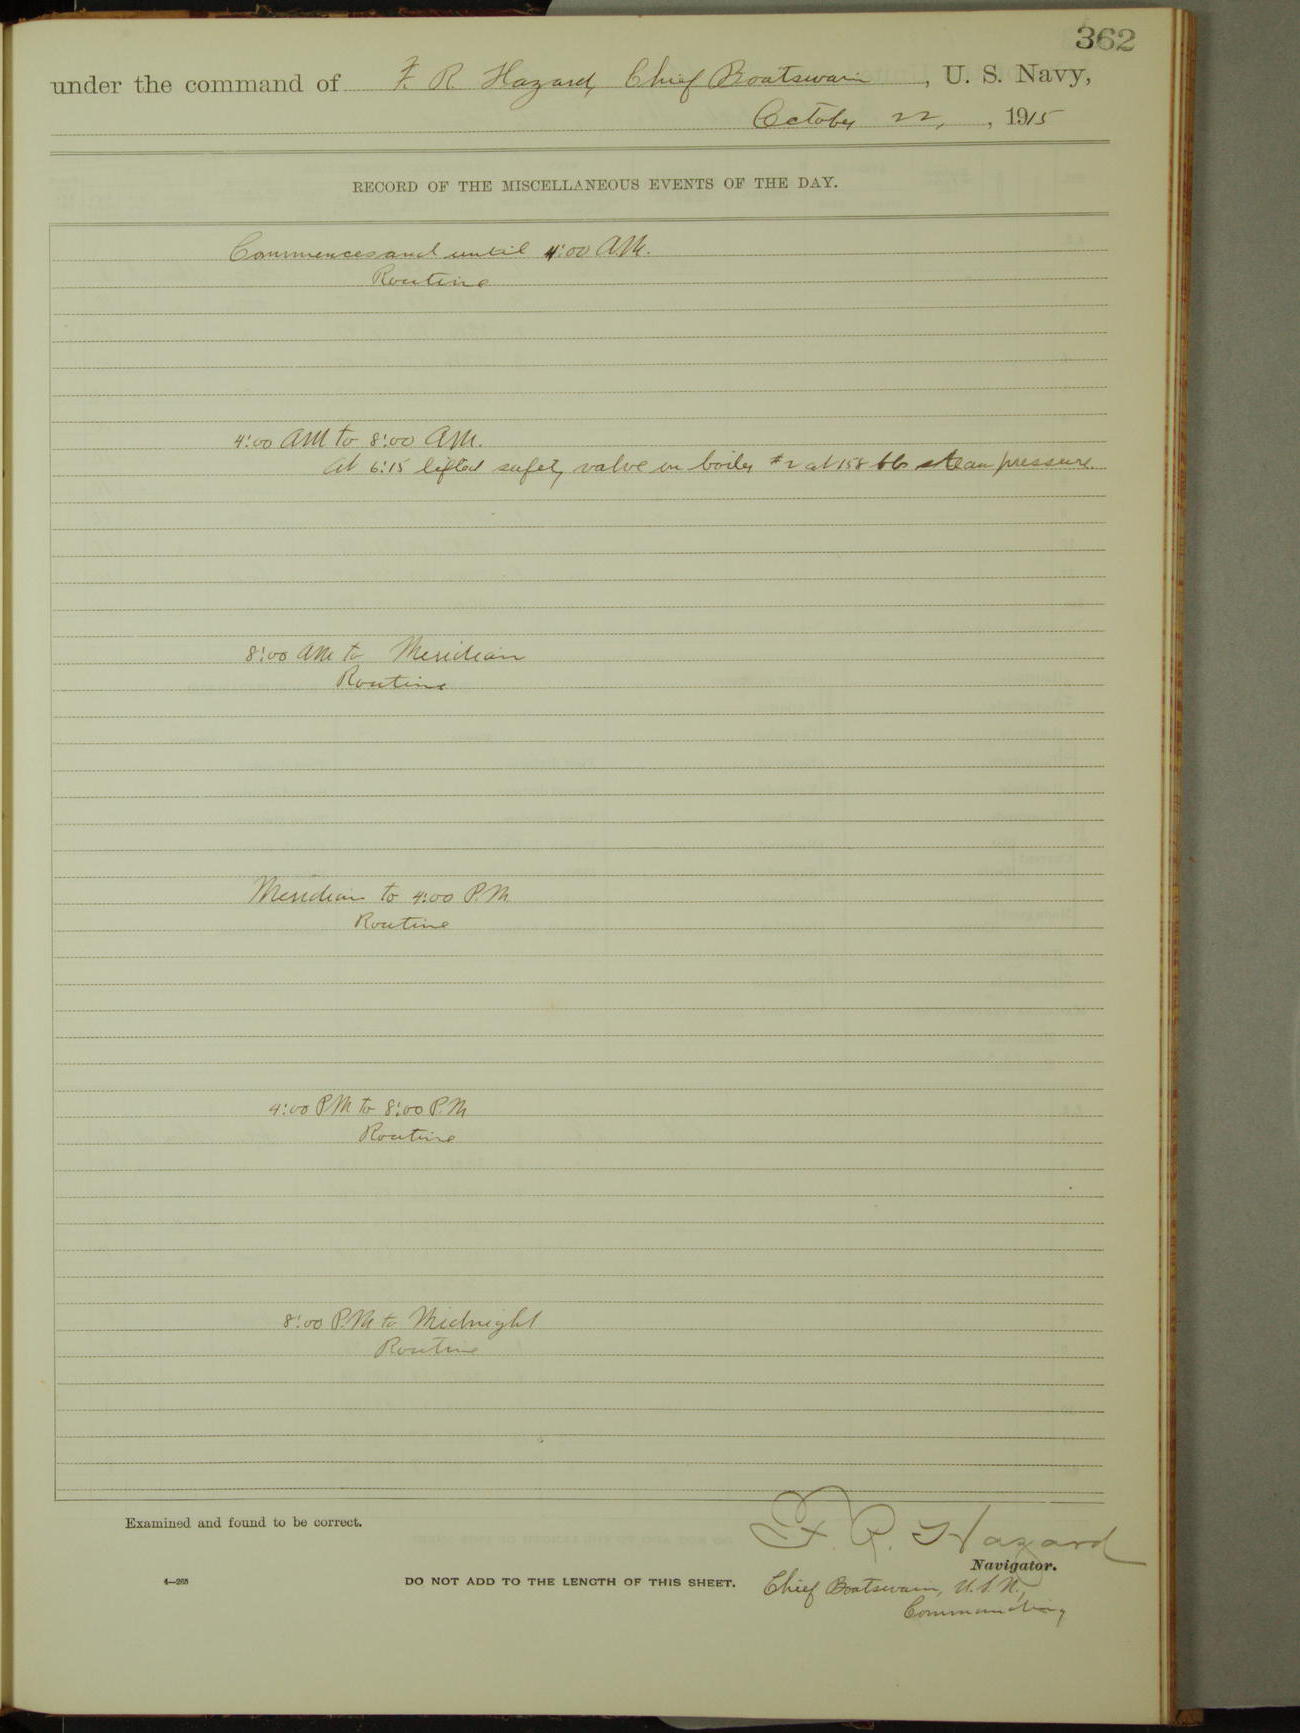 362
under the command of F. R. Hazard, Chief Boatswain, U. S. Navy,
October 22, , 1915
RECORD OF THE MISCELLANEOUS EVENTS OF THE DAY.
Commences and until 4:00 A.M.
Routine
4:00 AM to 8:00 AM.
At 6:15 lifted safety valve on boiler #2 at 158 lbs steam pressure.
8:00 AM to Meridian
Routine
Meridian to 4:00 P.M.
Routine
4:00 PM to 8:00 P.M
Routine
8:00 P.M to Midnight
Routine
Examined and found to be correct.
F. R. Hazard
Navigator.
4—268 DO NOT ADD TO THE LENGTH OF THIS SHEET.
Chief Boatswain, U.S.N.,
Commanding